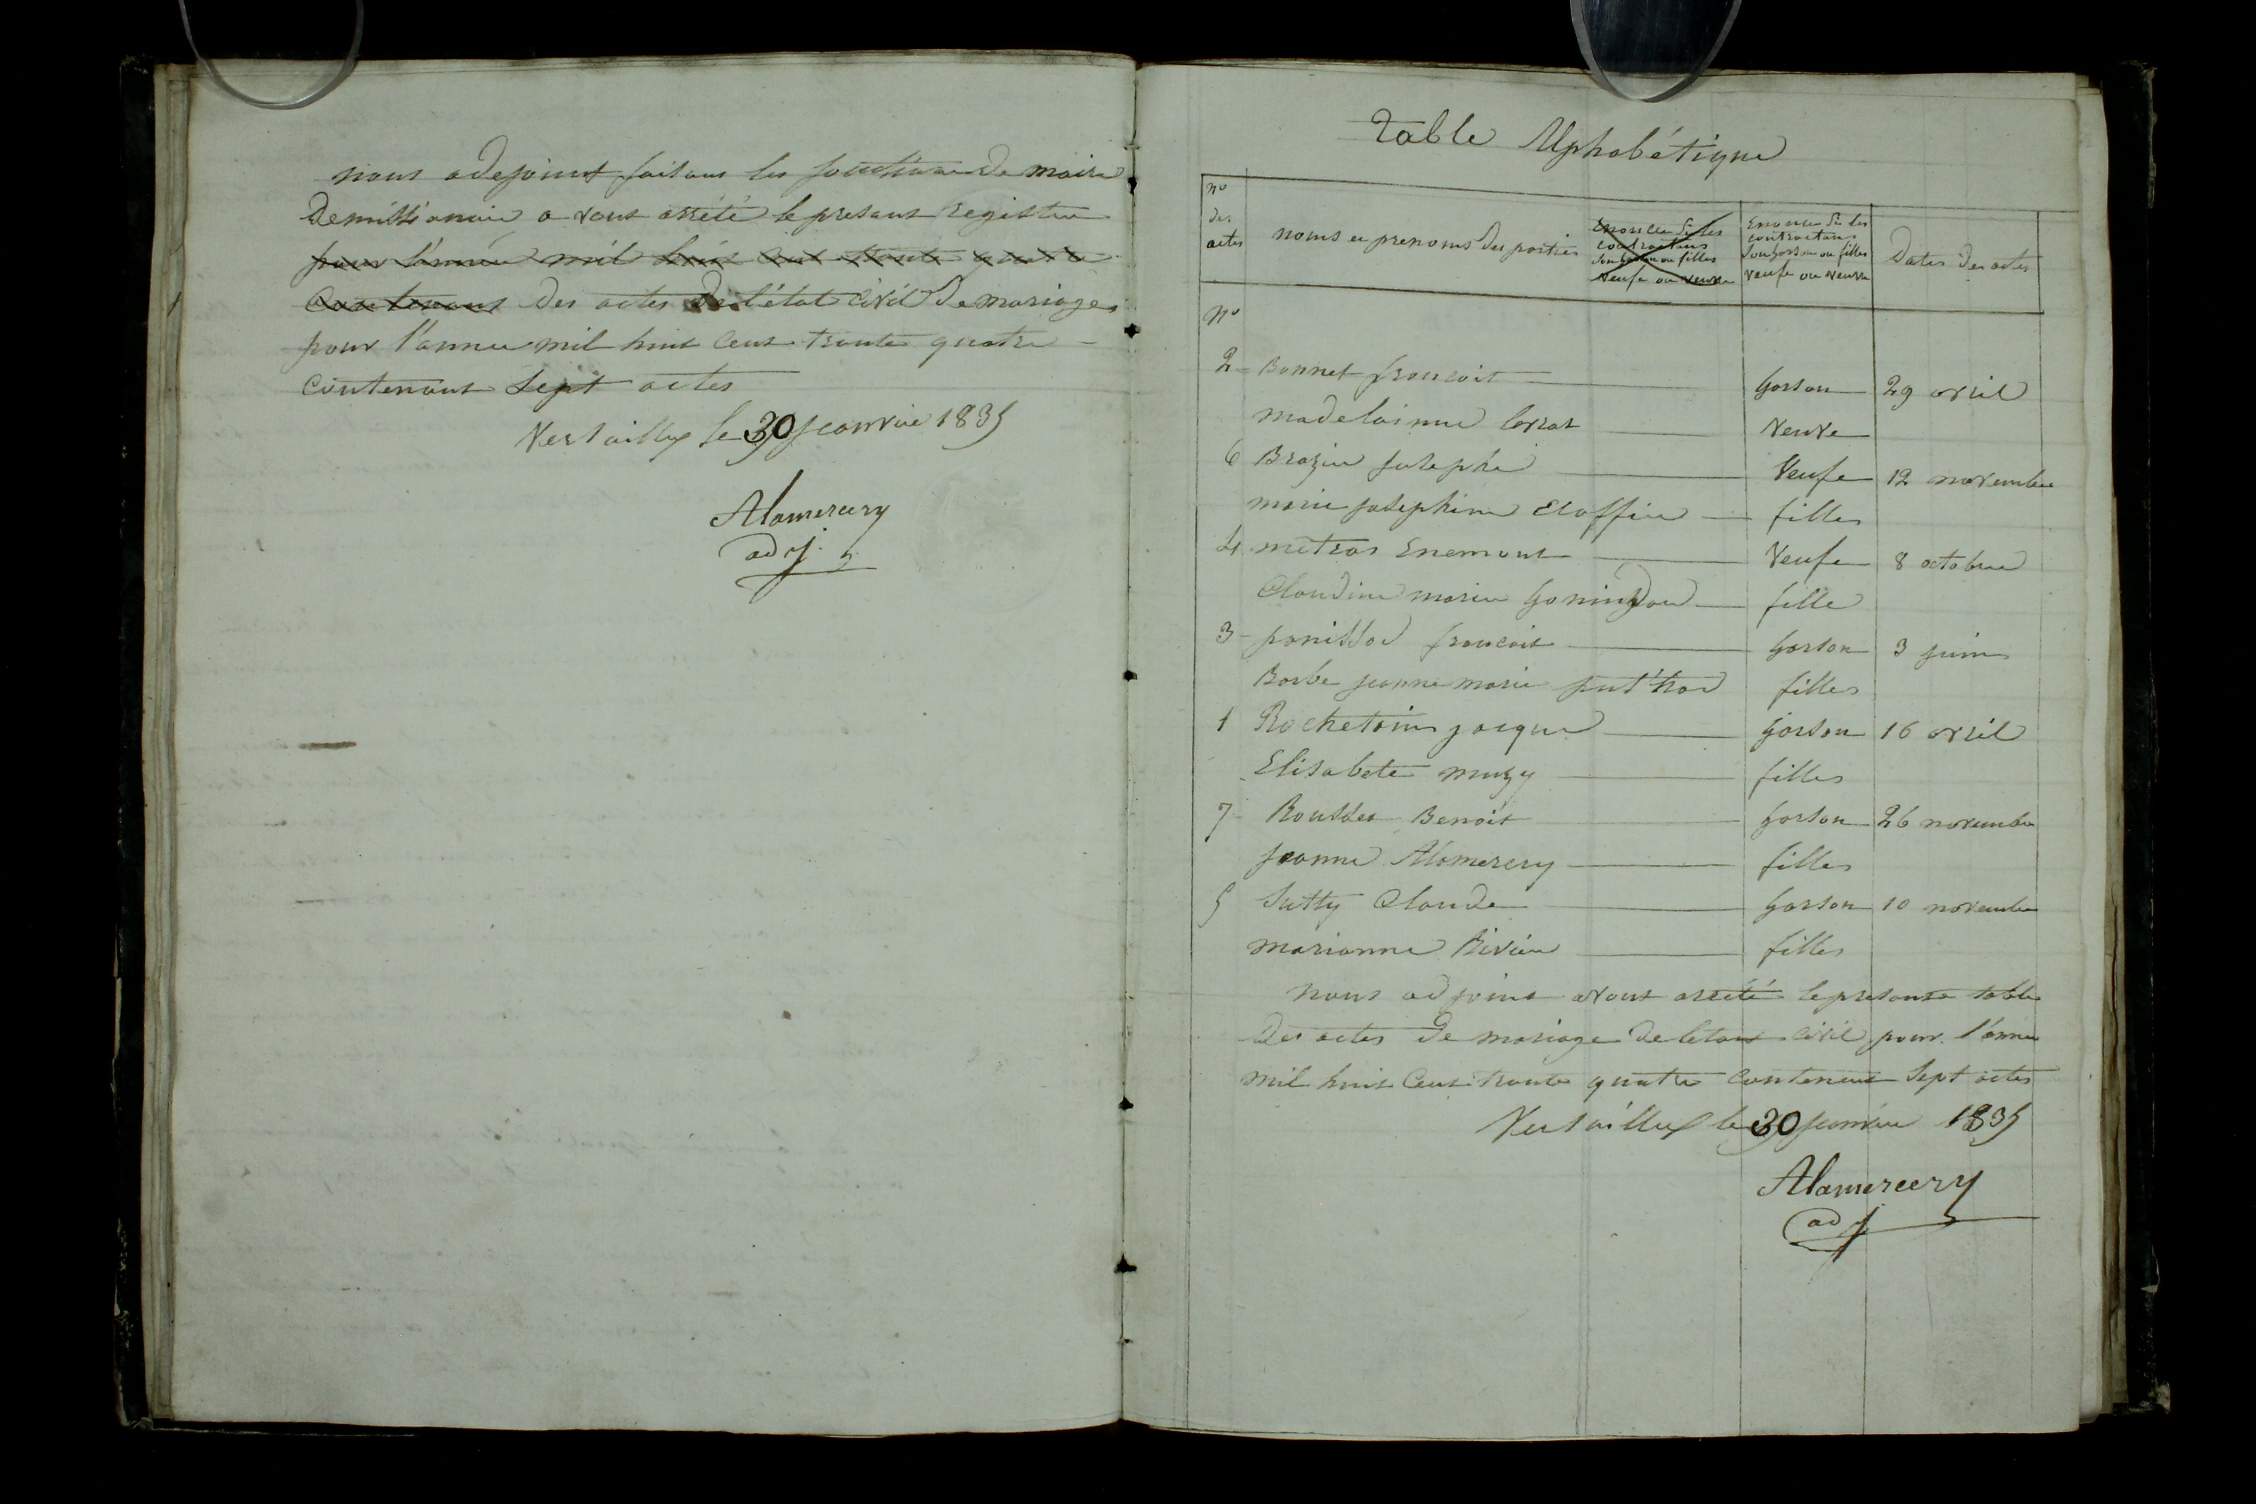 nous adejoint faisans les fonctions de maire
Demissionaire a vons arrété le presant registre
pour l'année mil huit cent trente quatre
contenant des actes de l'état civil de mariages
pour l'annee mil huit cent trente quatre
contenant sept actes
Versailleux le 30 Jeanvie 1835
Alamercery
adj.
table Alphabétique
no des actes
noms et prenoms des parties
Enoncer si les contractans son garson ou filles veufe ou veuve
Enoncer si les contractans son garson ou filles veufe ou veuve
Dates des actes
no
2 Bonnet francoit garson 29 avril
madelainne veuve
6 Brazier Josephe Veufe 12 novembre
marie Josephine filles
4 metras Enemont Veufe 8 octobre
Claudine marie fille
3 panissod francoit garson 3 juin
Barbe jeanne marie put'hod filles
1 Rochetain jacque garson 16 avril
Elisabete muzy filles
7 Rousset Benoit garson 26 novembre
Jeanne Alamercery filles
5 Sutty Claude garson 10 novembre
marianne filles
nous adjoint avons arreté le presante table
des actes de mariage de letat civil pour l'annee
mil huit cent trente quatre contenant sept actes
Versailleux le 30 Jeanvie 1835
Alamercery
adj